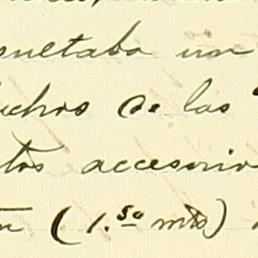 sultaba un
uchos de las
tos accesorio
(1.50 mts)